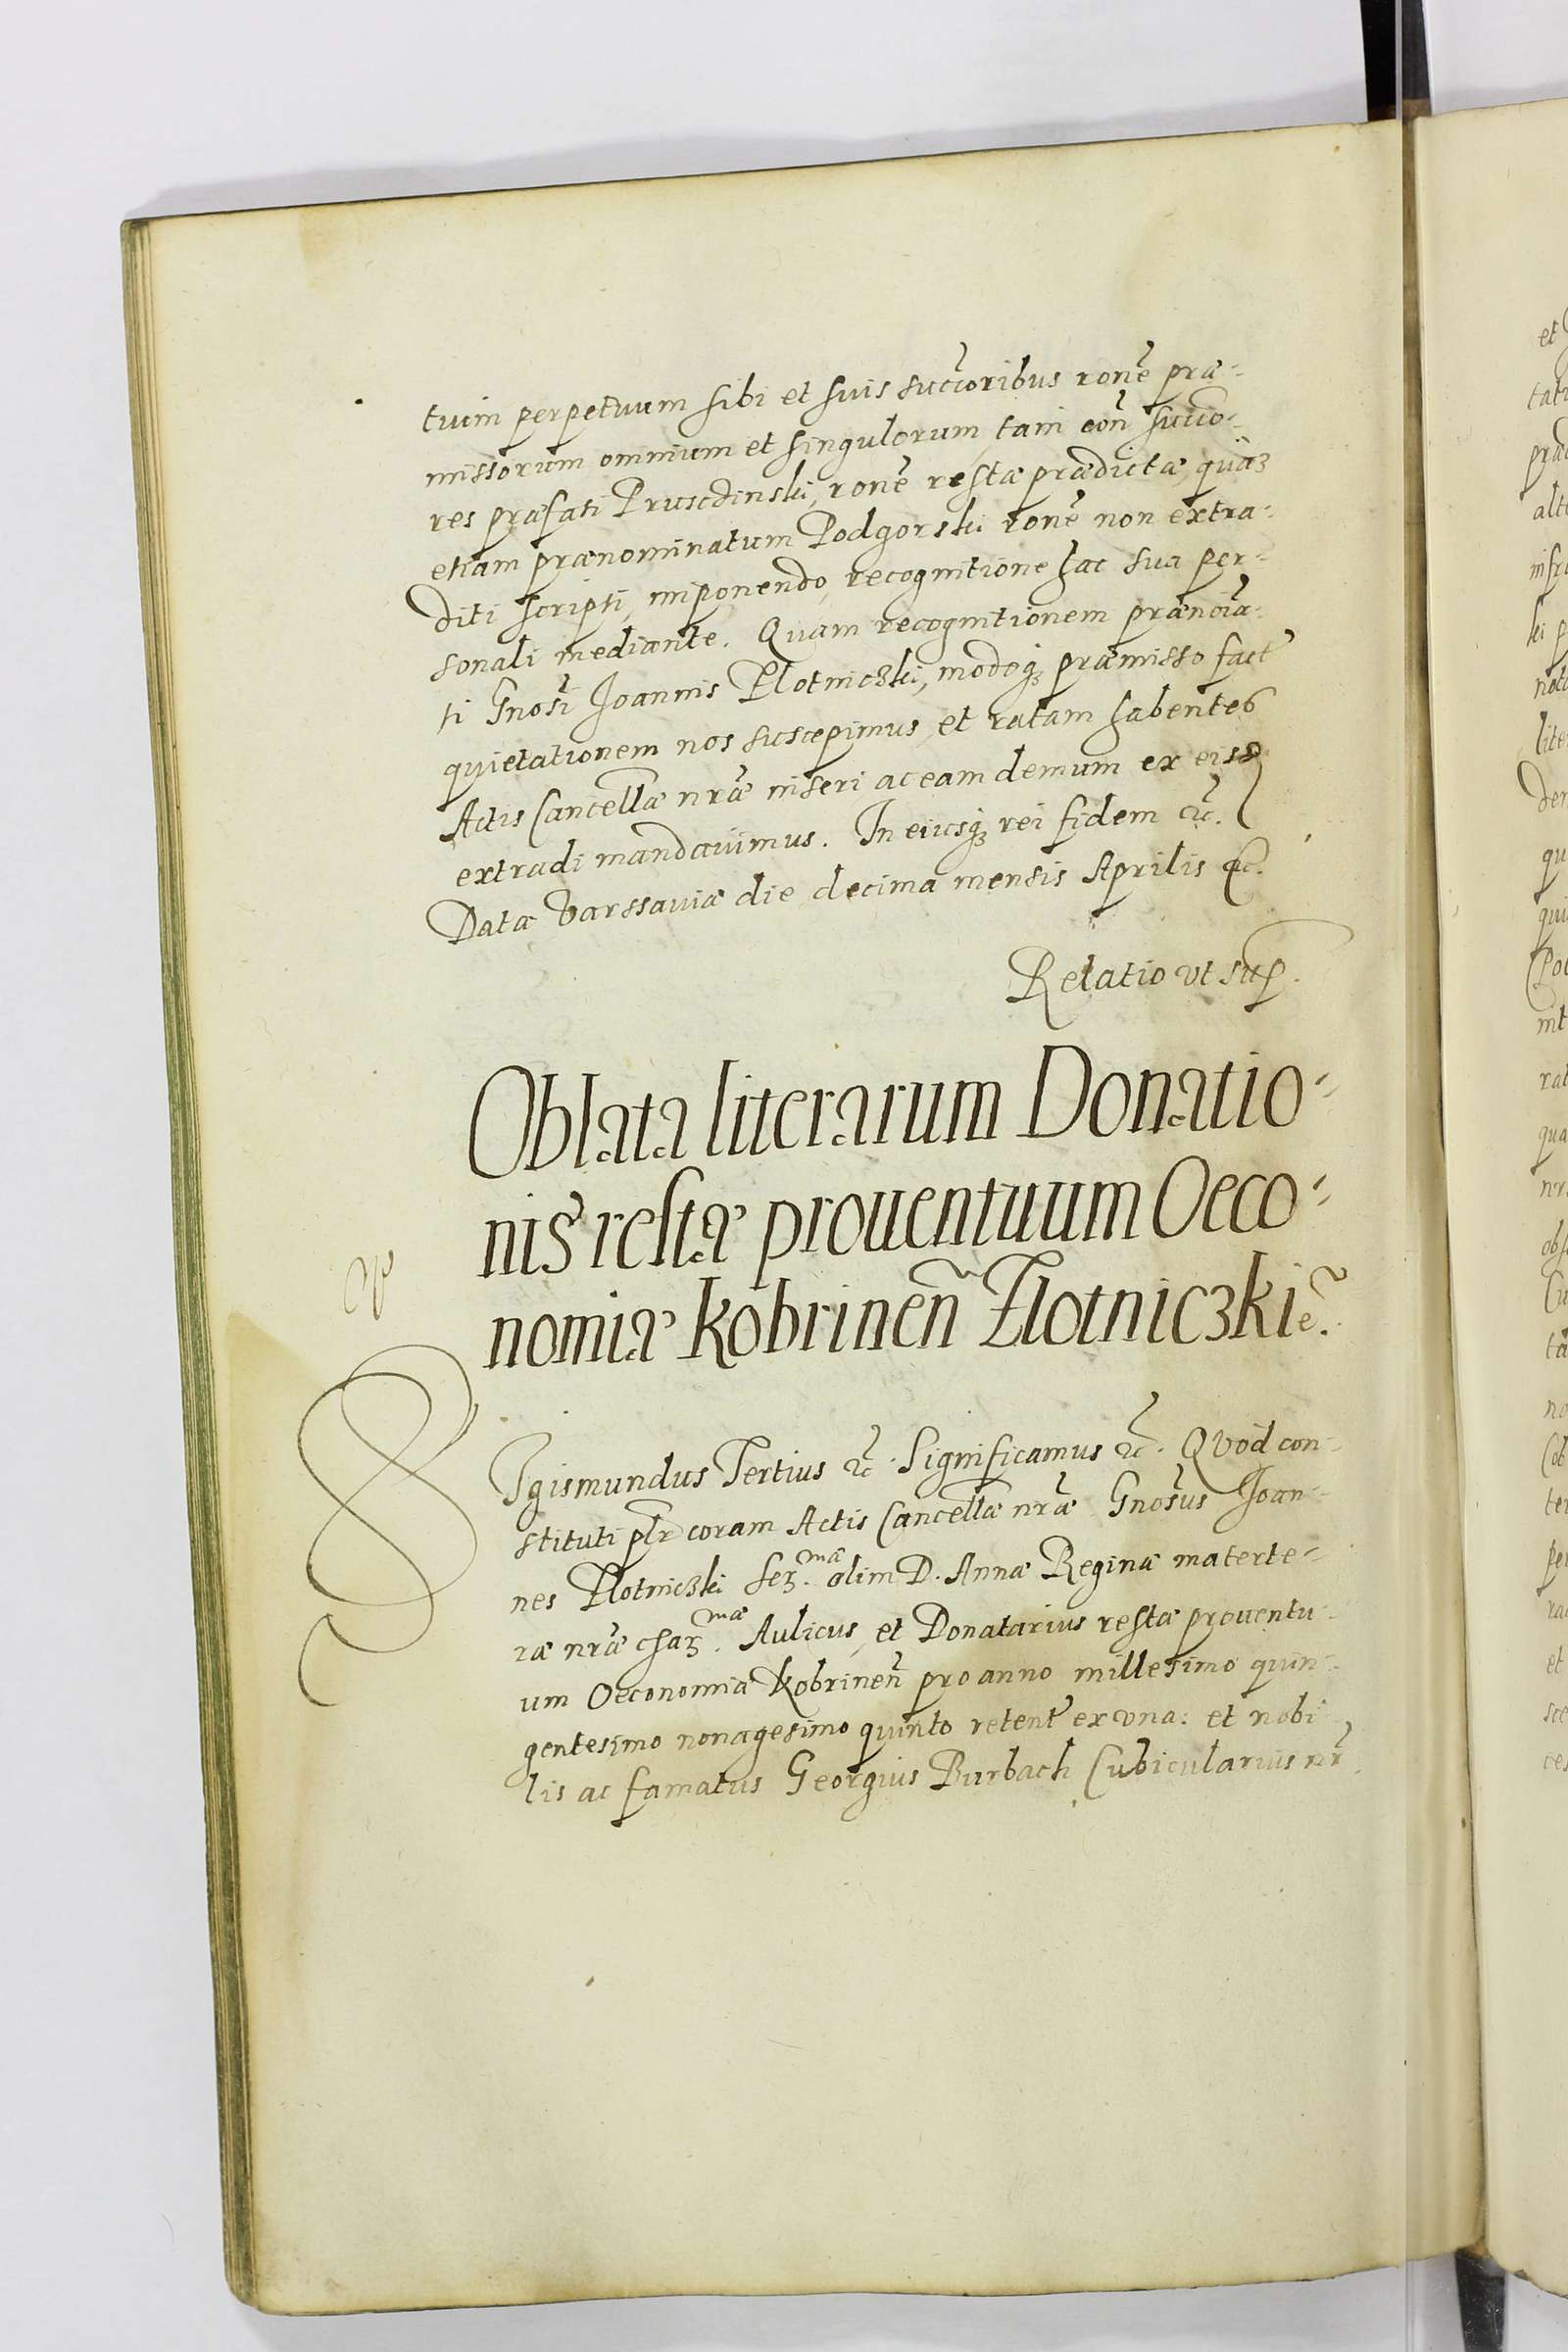 tuim perpetuum sibi et suis succ̃oribus ronẽ præ-
missorum omnium et singulorum, tam eoñ succo-
res præfati Pruscdinski, ronẽ restæ prædictæ, quàꝫ
etiam prænominatum Podgorski ronẽ non extra-
diti scripti, imponendo, recognitione hac sua per-
sonali mediante. Quam recognitionem prænoĩa-
ti Gnosĩ Joannis Zlotniczki, modoqꝫ præmisso fact̃
quietationem nos suscepimus, et ratam habentes
Actis Cancellæ nr̃æ inseri ac eam demum ex eisd
extradi mandauimus. In eiusqꝫ rei fidem etc̃.
Datæ Varssauiæ die decima mensis Aprilis etc.
Relatio vt sup.
Oblata literarum Donatio-
nis restæ prouentuum Oeco-
nomiæ Kobrineñ Zlotniczkiẽ.
Sgismundus Tertius etc̃. Significamus etc̃. Quod con-
stituti pl̃r coram Actis Cancellæ nr̃æ Gnosũs Joan-
nes Zlotniczki Serꝫ.mæ olim D. Annæ Reginæ materte-
ræ nr̃æ chaꝫ.mæ Aulicus, et Donatarius restæ prouentu-
um Oeconomiæ Kobrineñ pro anno millesimo quin-
gentesimo nonagesimo quinto retent̃ ex vna: et nobi
lis ac famatus Georgius Burbach Cubicularius nr̃